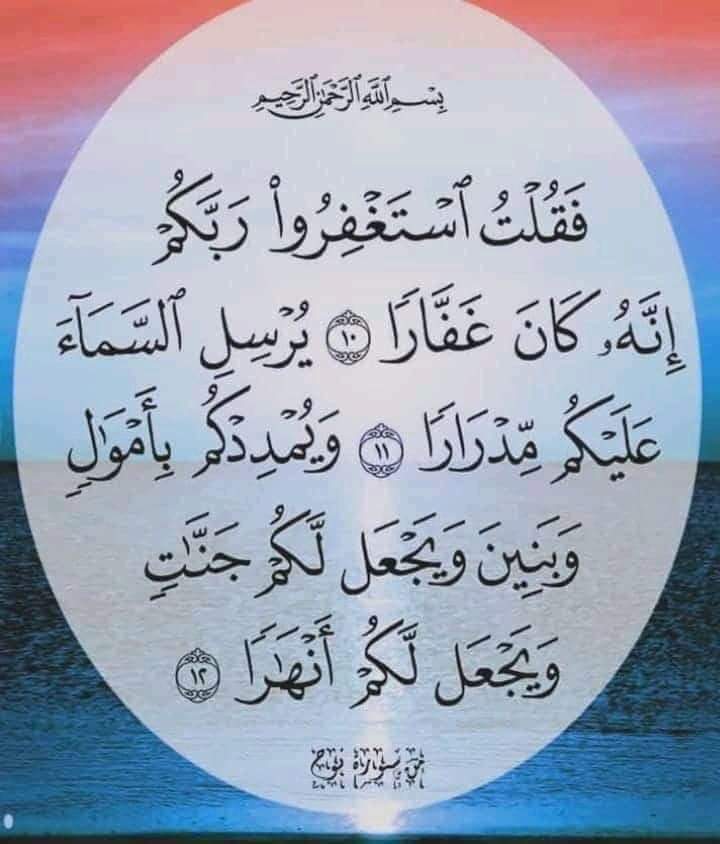 بِسْمِ ٱللَّهِ ٱلرَّحْمَٰنِ ٱلرَّحِيمِ
فَقُلْتُ ٱسْتَغْفِرُوا۟ رَبَّكُمْ
إِنَّهُۥ كَانَ غَفَّارًا ١٠ يُرْسِلِ ٱلسَّمَآءَ
عَلَيْكُم مِّدْرَارًا ١١ وَيُمْدِدْكُم بِأَمْوَٰلٍ
وَبَنِينَ وَيَجْعَل لَّكُمْ جَنَّٰتٍ
وَيَجْعَل لَّكُمْ أَنْهَٰرًا ١٢
من سورة نوح